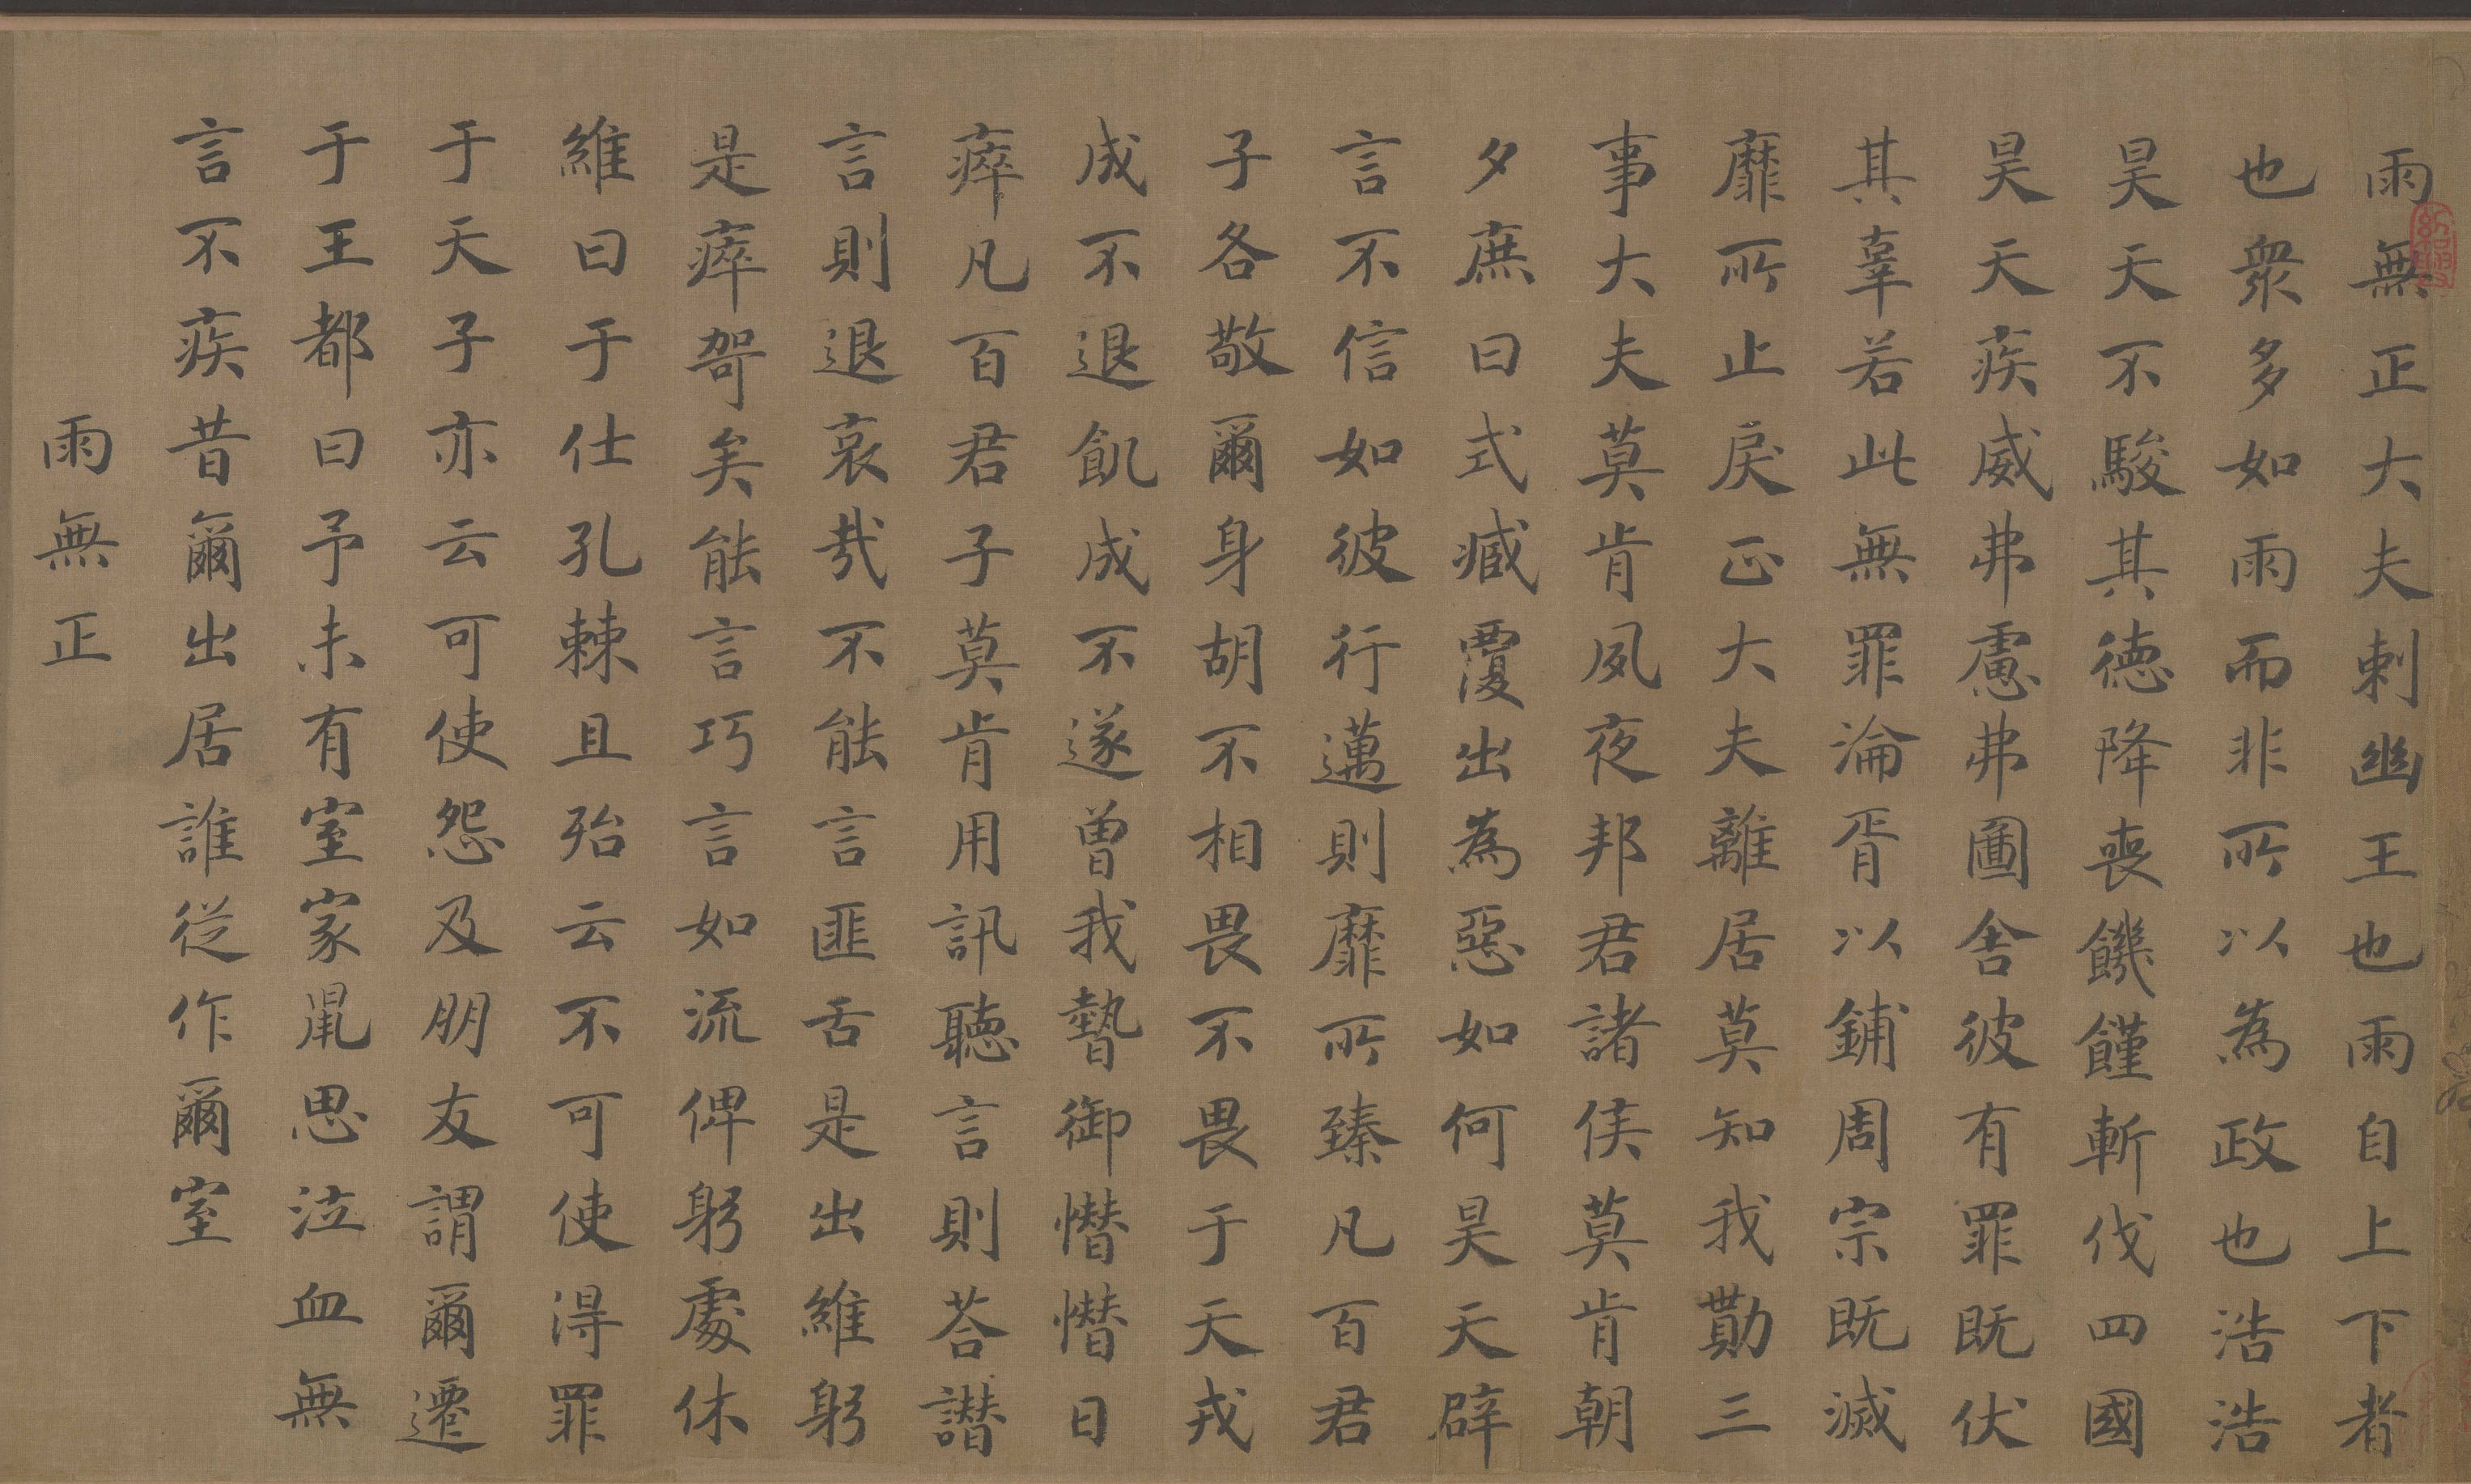 雨無正大夫刺幽王也雨自上下者
也衆多如雨而非所以為政也浩浩
昊天不駿其德降喪饑饉斬伐四國
昊天疾威弗慮弗圖舍彼有罪既伏
其辜若此無罪淪胥以鋪周宗既滅
靡所止戾正大夫離居莫知我勩三
事大夫莫肯夙夜邦君諸侯莫肯朝
夕庶曰式臧覆出為惡如何昊天辟
言不信如彼行邁則靡所臻凡百君
子各敬爾身胡不相畏不畏于天戎
成不退飢成不遂曾我暬御憯憯日
瘁凡百君子莫肯用訊聽言則荅譖
言則退哀哉不能言匪舌是出維躬
是瘁哿矣能言巧言如流俾躬處休
維曰于仕孔棘且殆云不可使得罪
于天子亦云可使怨及朋友謂爾遷
于王都曰予未有室家鼠思泣血無
言不疾昔爾出居誰從作爾室
雨無正